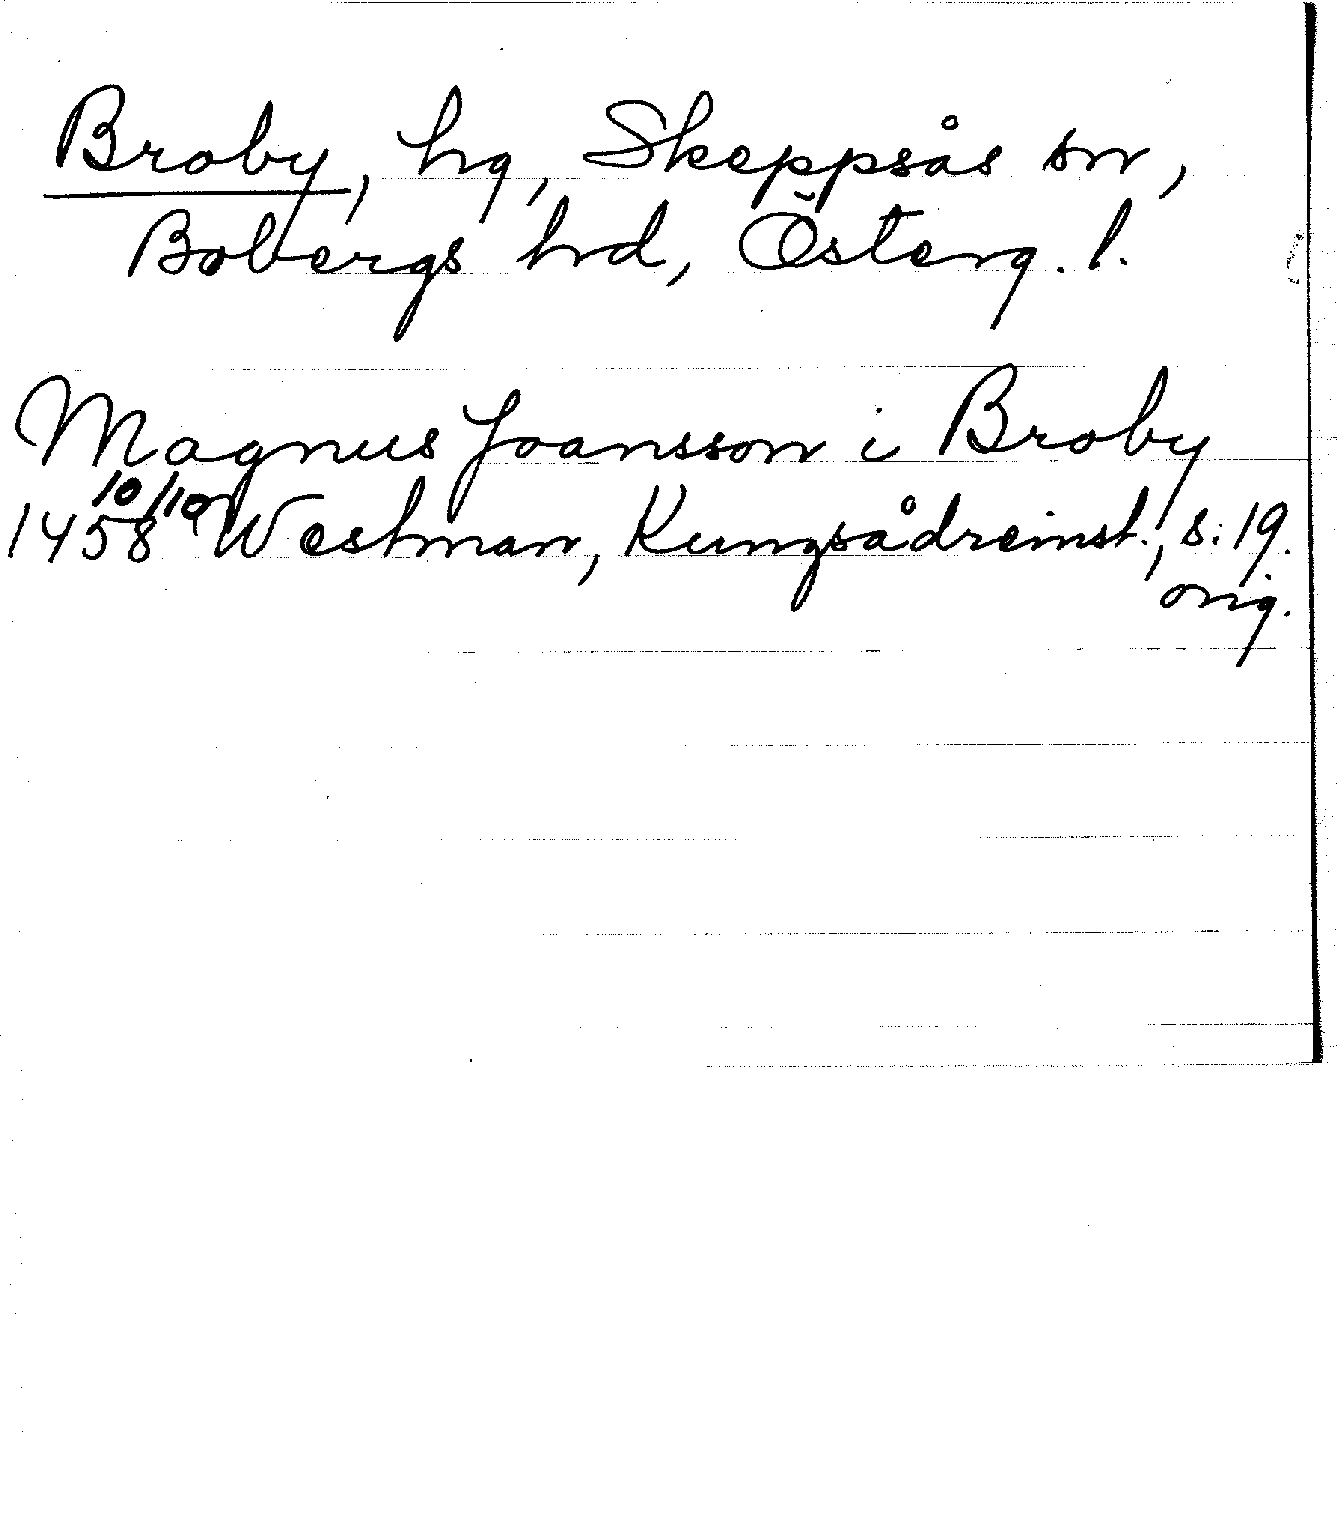 Broby, hg, Skeppsås sn,
Bobergs hrd, Österg. l.
Magnus Joansson i Broby
1458 10/10 Westman, Kungsådreinst., s. 19.
orig.